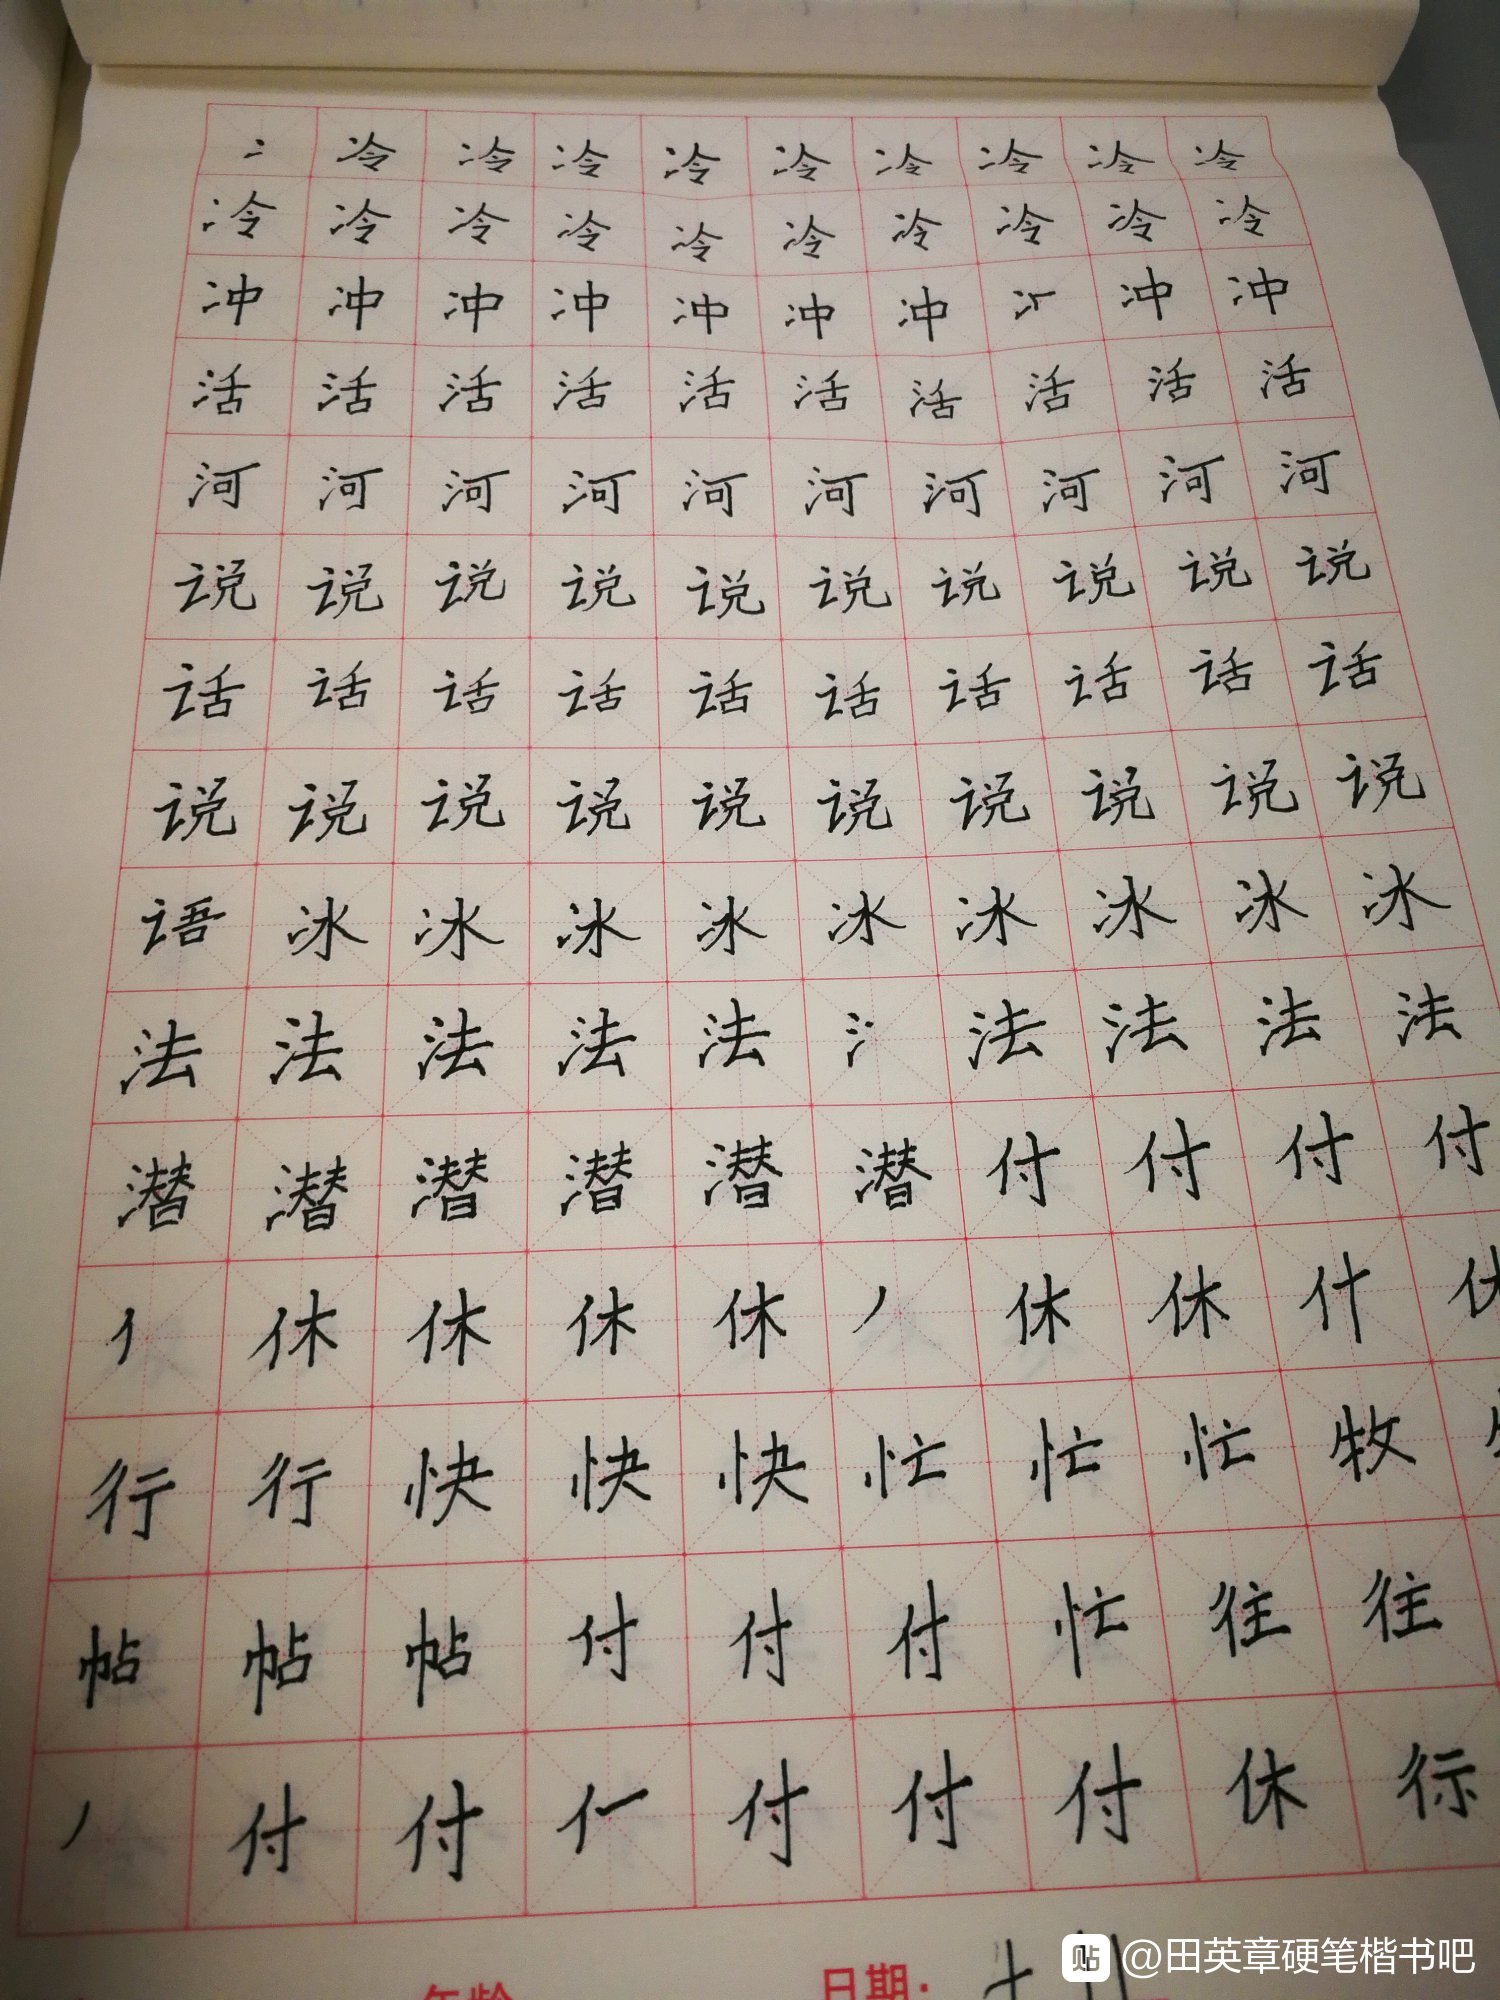 冫冷冷冷冷冷冷冷冷冷
冷冷冷冷冷冷冷冷冷冷
冲冲冲冲冲冲冲冲冲
活活活活活活活活活活
河河河河河河河河河河
说说说说说说说说说说
话话话话话话话话话话
说说说说说说说说说说
语冰冰冰冰冰冰冰冰冰
法法法法法氵法法法法
潜潜潜潜潜潜付付付付
亻休休休休丿休休什休
行行快快快忙忙忙牧
帖帖帖付付付忙往往
丿付付付付付休
年龄 日期:
贴 @田英章硬笔楷书吧